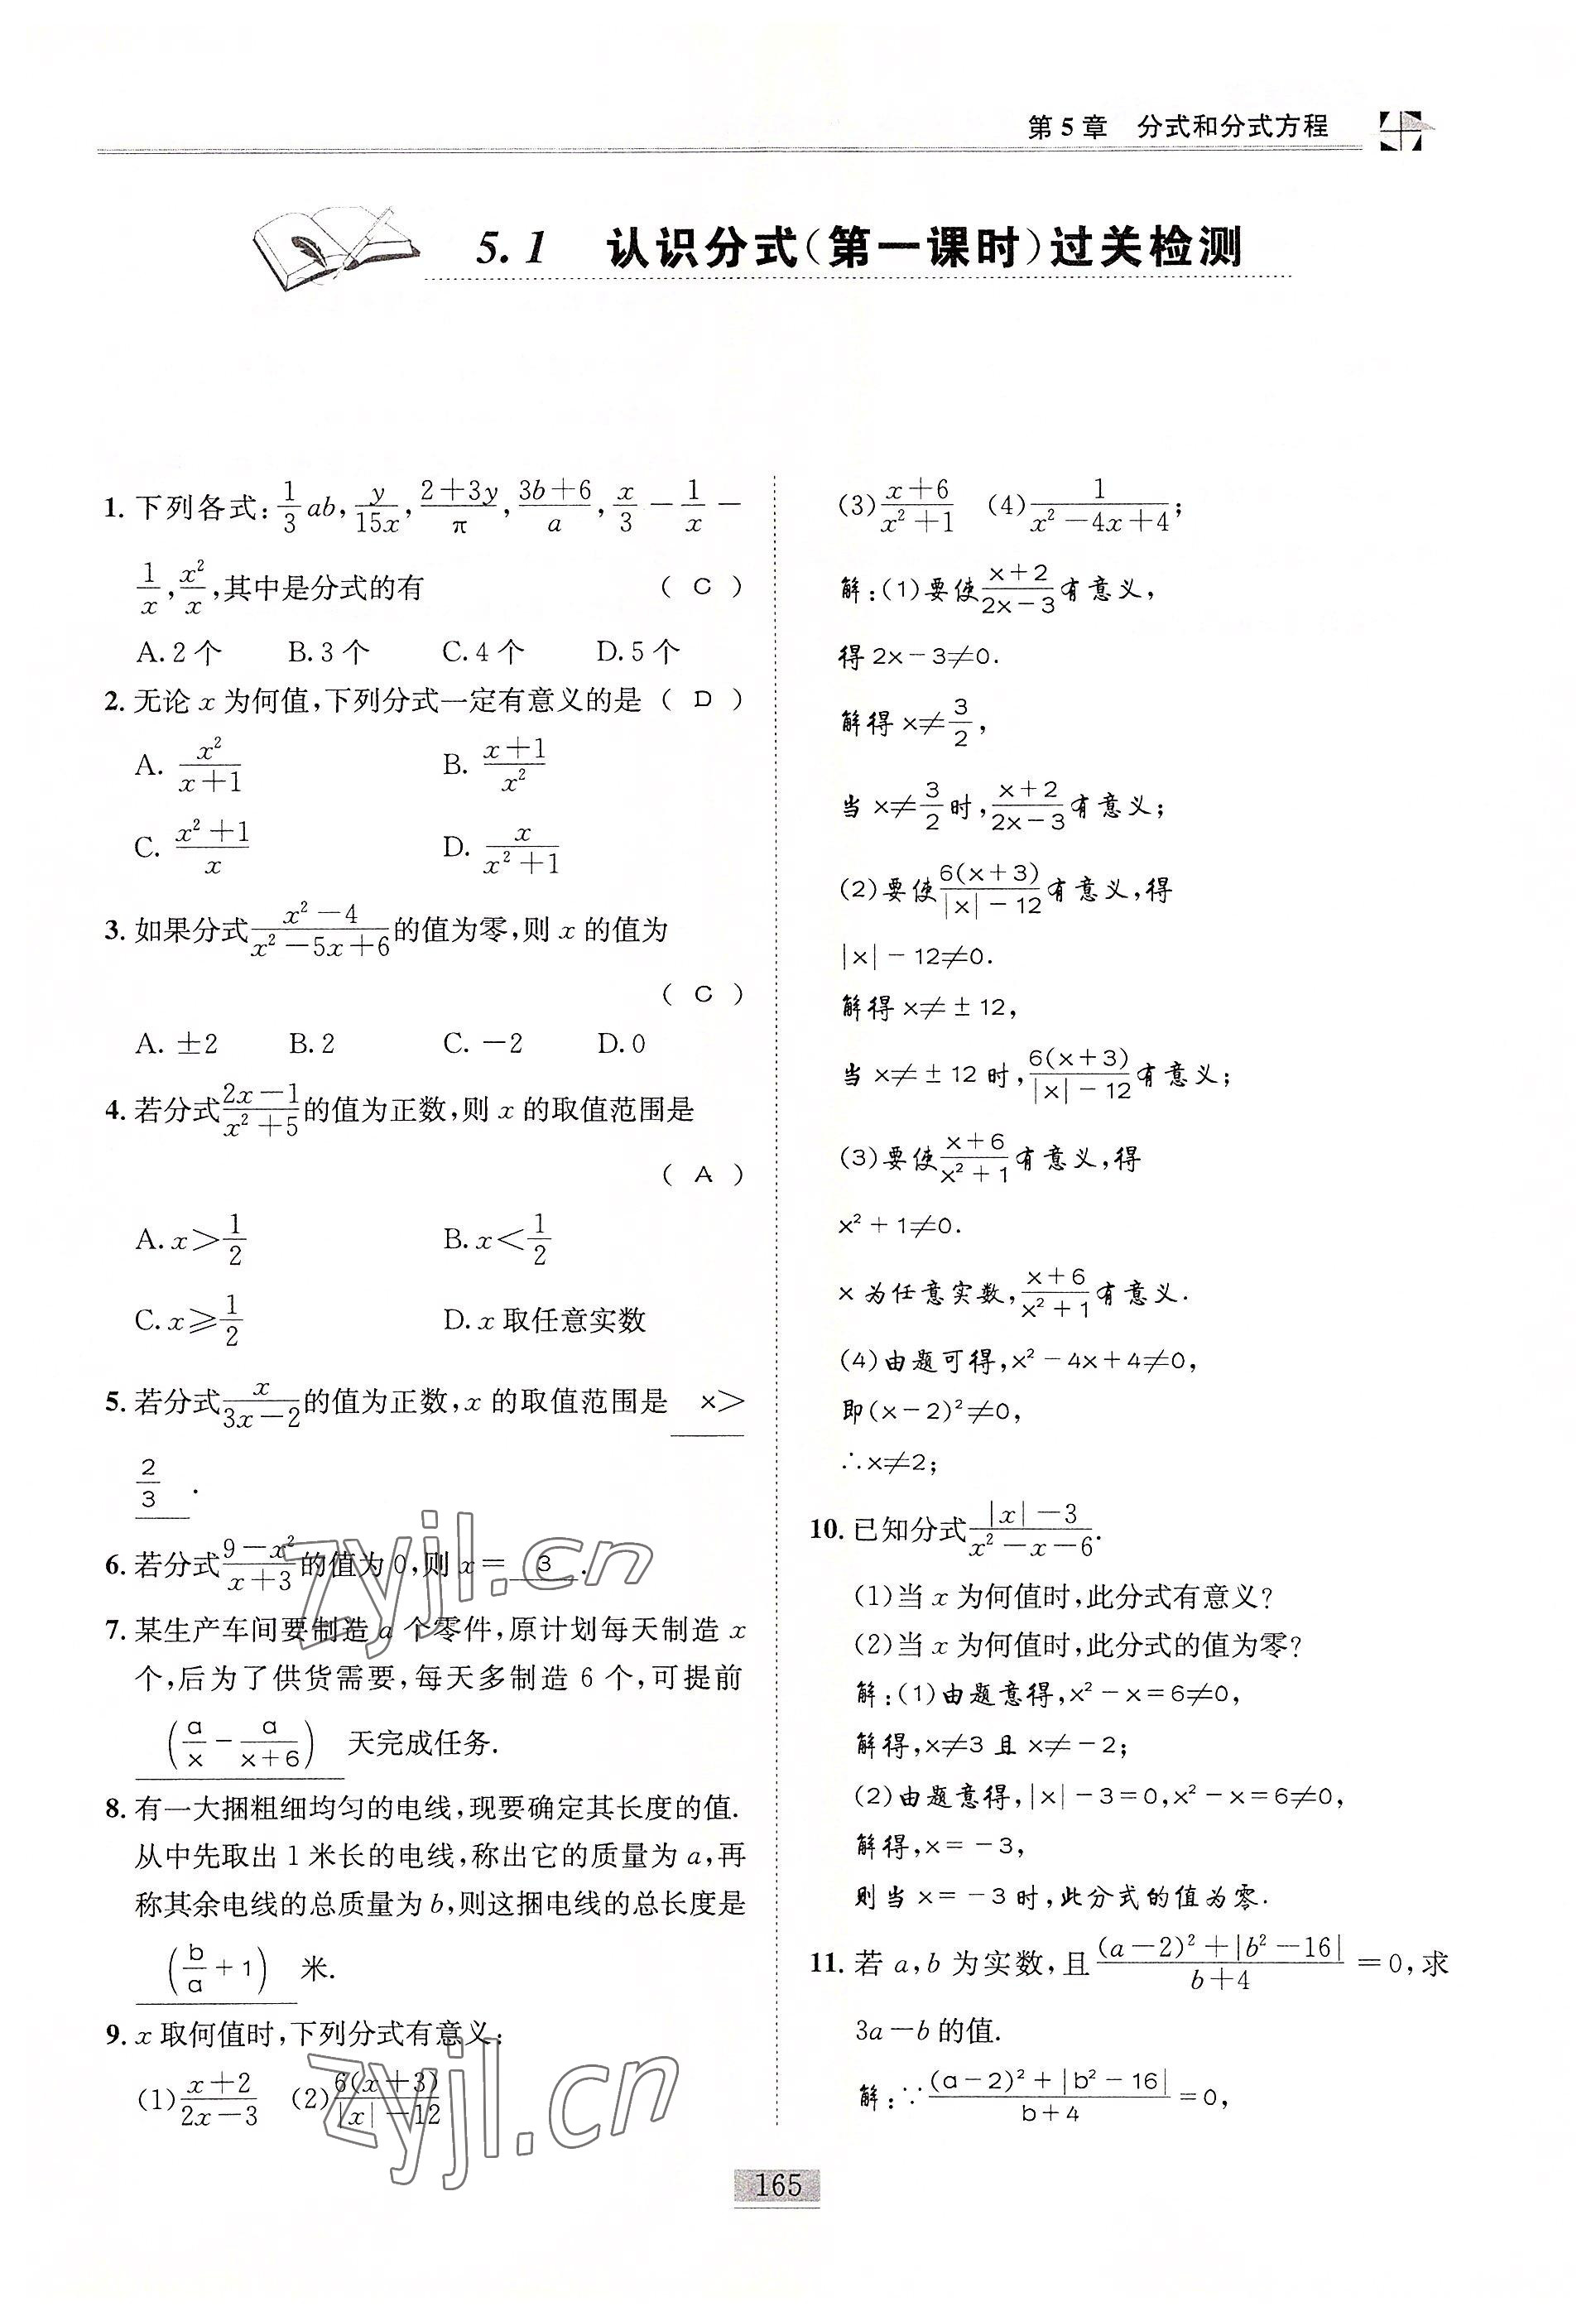 第5章 分式和分式方程
5.1 认识分式(第一课时)过关检测
1. 下列各式:1/3 ab, y/15x, (2+3y)/π, (3b+6)/a, x/3 - 1/x -
1/x, x²/x,其中是分式的有 ( C )
A.2个 B.3个 C.4个 D.5个
2. 无论 x 为何值,下列分式一定有意义的是 ( D )
A. x²/(x+1) B. (x+1)/x²
C. (x²+1)/x D. x/(x²+1)
3. 如果分式(x²-4)/(x²-5x+6)的值为零,则 x 的值为
( C )
A. ±2 B.2 C. -2 D.0
4. 若分式(2x-1)/(x²+5)的值为正数,则 x 的取值范围是
( A )
A. x>1/2 B. x<1/2
C. x⩾1/2 D. x 取任意实数
5. 若分式x/(3x-2)的值为正数,x 的取值范围是 x>
2/3 .
6. 若分式(9-x²)/(x+3)的值为 0,则 x= 3 .
7. 某生产车间要制造 a 个零件,原计划每天制造 x
个,后为了供货需要,每天多制造 6 个,可提前
(a/x - a/(x+6)) 天完成任务.
8. 有一大捆粗细均匀的电线,现要确定其长度的值.
从中先取出 1 米长的电线,称出它的质量为 a,再
称其余电线的总质量为 b,则这捆电线的总长度是
(b/a+1) 米.
9. x 取何值时,下列分式有意义:
(1)(x+2)/(2x-3) (2)6(x+3)/(|x|-12)
(3)(x+6)/(x²+1) (4)1/(x²-4x+4);
解:(1)要使(x+2)/(2x-3)有意义,
得 2x-3≠0.
解得 x≠3/2,
当 x≠3/2时,(x+2)/(2x-3)有意义;
(2)要使6(x+3)/(|x|-12)有意义,得
|x|-12≠0.
解得 x≠±12,
当 x≠±12 时,6(x+3)/(|x|-12)有意义;
(3)要使(x+6)/(x²+1)有意义,得
x²+1≠0.
x 为任意实数,(x+6)/(x²+1)有意义.
(4)由题可得,x²-4x+4≠0,
即(x-2)²≠0,
∴x≠2;
10. 已知分式(|x|-3)/(x²-x-6).
(1)当 x 为何值时,此分式有意义?
(2)当 x 为何值时,此分式的值为零?
解:(1)由题意得,x²-x=6≠0,
解得,x≠3 且 x≠-2;
(2)由题意得,|x|-3=0,x²-x=6≠0,
解得,x=-3,
则当 x=-3 时,此分式的值为零.
11. 若 a,b 为实数,且((a-2)²+|b²-16|)/(b+4)=0,求
3a-b 的值.
解:∵((a-2)²+|b²-16|)/(b+4)=0,
165
zyjl.cn
zyjl.cn